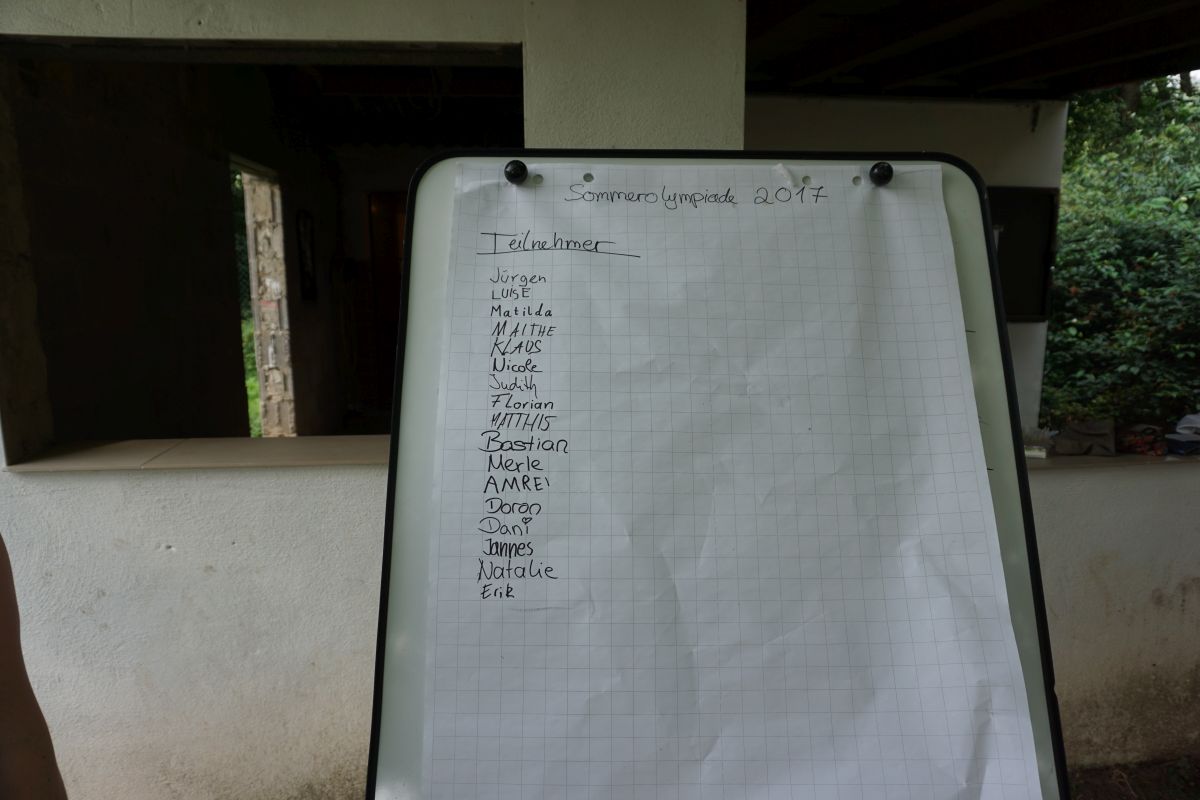 Sommerolympiade 2017
Teilnehmer
Jürgen
LUISE
Matilda
MALTHE
KLAUS
Nicole
Judith
Florian
MATTHIS
Bastian
Merle
AMREI
Doron
Dani
Jannes
Natalie
Erik